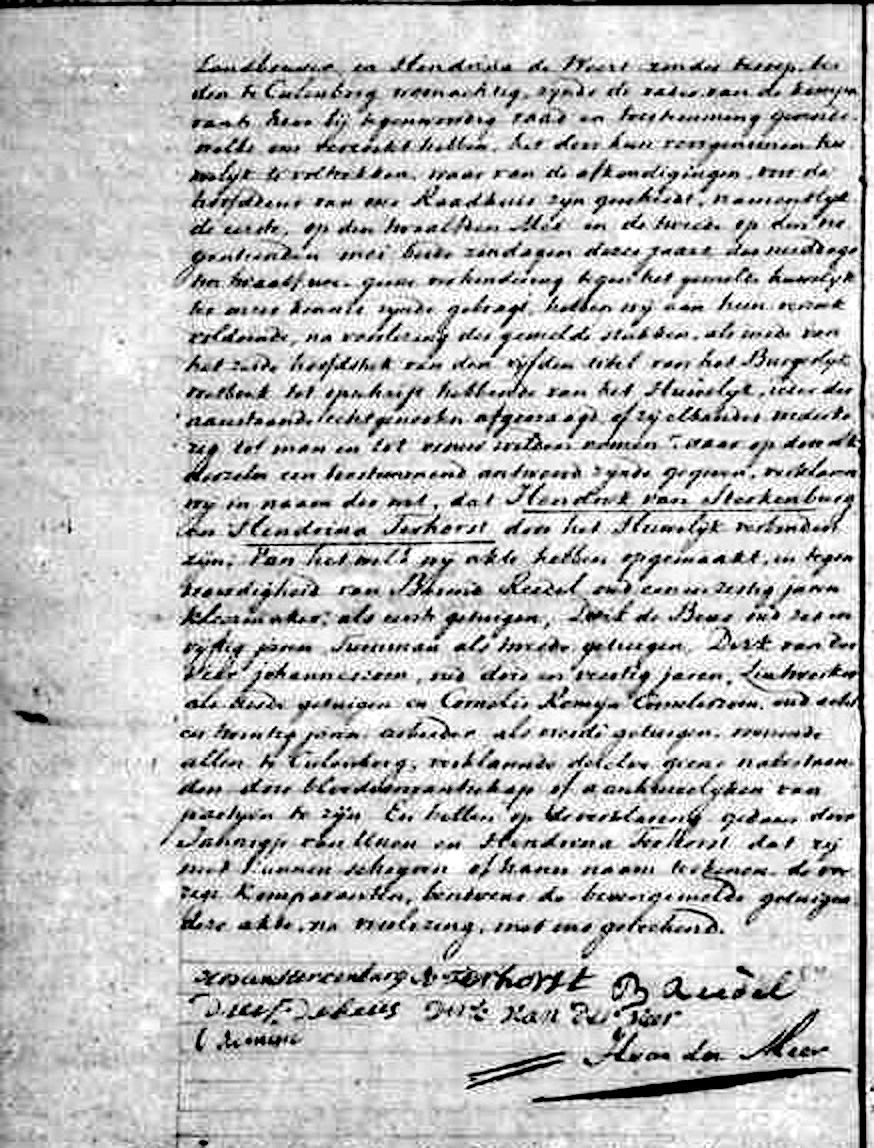 Landbouwer, en Hendrina de Weert zonder beroep, bei
den te Culenborg woonachtig, zynde de vader van de kompa
rante hier bij tegenwoordig
welke ons verzocht hebben, het door hun voorgenomen hu
welyk te voltrekken, waar van de afkondigingen, voor de
hoofddeur van ons Raadhuis zyn geschied, namentlyk
de eerste, op den twaalfden Mei en de tweede op den ne
gentienden mei beide zondagen dezes jaars des middags
ten twaalf ure. geene verhindering tegen het gemelde huwelyk
ter onzer kennis zynde gebragt, hebben wy aan hun verzoek
voldoende, na voorlezing der gemelde stukken, als mede van
het zesde hoofdstuk van den vyfden titel van het Burgerlyk
wetboek tot opschrift hebbende van het Huwelyk, ieder der
aanstaande echtgenooten afgevraagd of zy elkander
zig tot man en tot vrouw wilden nemen? waar op door elk
derzelve een toestemmend antwoord zynde gegeven, verklaren
wy in naam der wet, dat Hendrik van Sterkenburg
en Hendrina Terhorst door het Huwelyk verbonden
zijn. Van het welk wy akte hebben opgemaakt, in tegen
woordigheid van Reedel oud een en zestig jaren
kleermaker, als eerste getuigen, Dirk de Beus oud zes en
vyftig jaren Tuinman als tweede getuigen, Dirk van der
Veer johanneszoon, oud drie en veertig jaren,
als derde getuigen en Cornelis Romyn Corneliszoon, oud acht
en twintig jaren, arbeider als vierde getuigen, wonende
allen te Culenborg, verklarende dezelve geene nabestaan
den door bloedverwantschap of aanhuwelyken van
partyen te zijn En hebben op de verklaring gedaan door
Jannigje van Unen en Hendrina Terhorst dat zij
niet kunnen schryven of haren naam teekenen de ove
rige komparanten, benevens de bovengemelde getuigen
deze akte, na voorlezing, met ons geteekend.
van sterkenburg terhorst B Reedel
D de Beus Dirk van der Veer
C Romein
H van der Meer